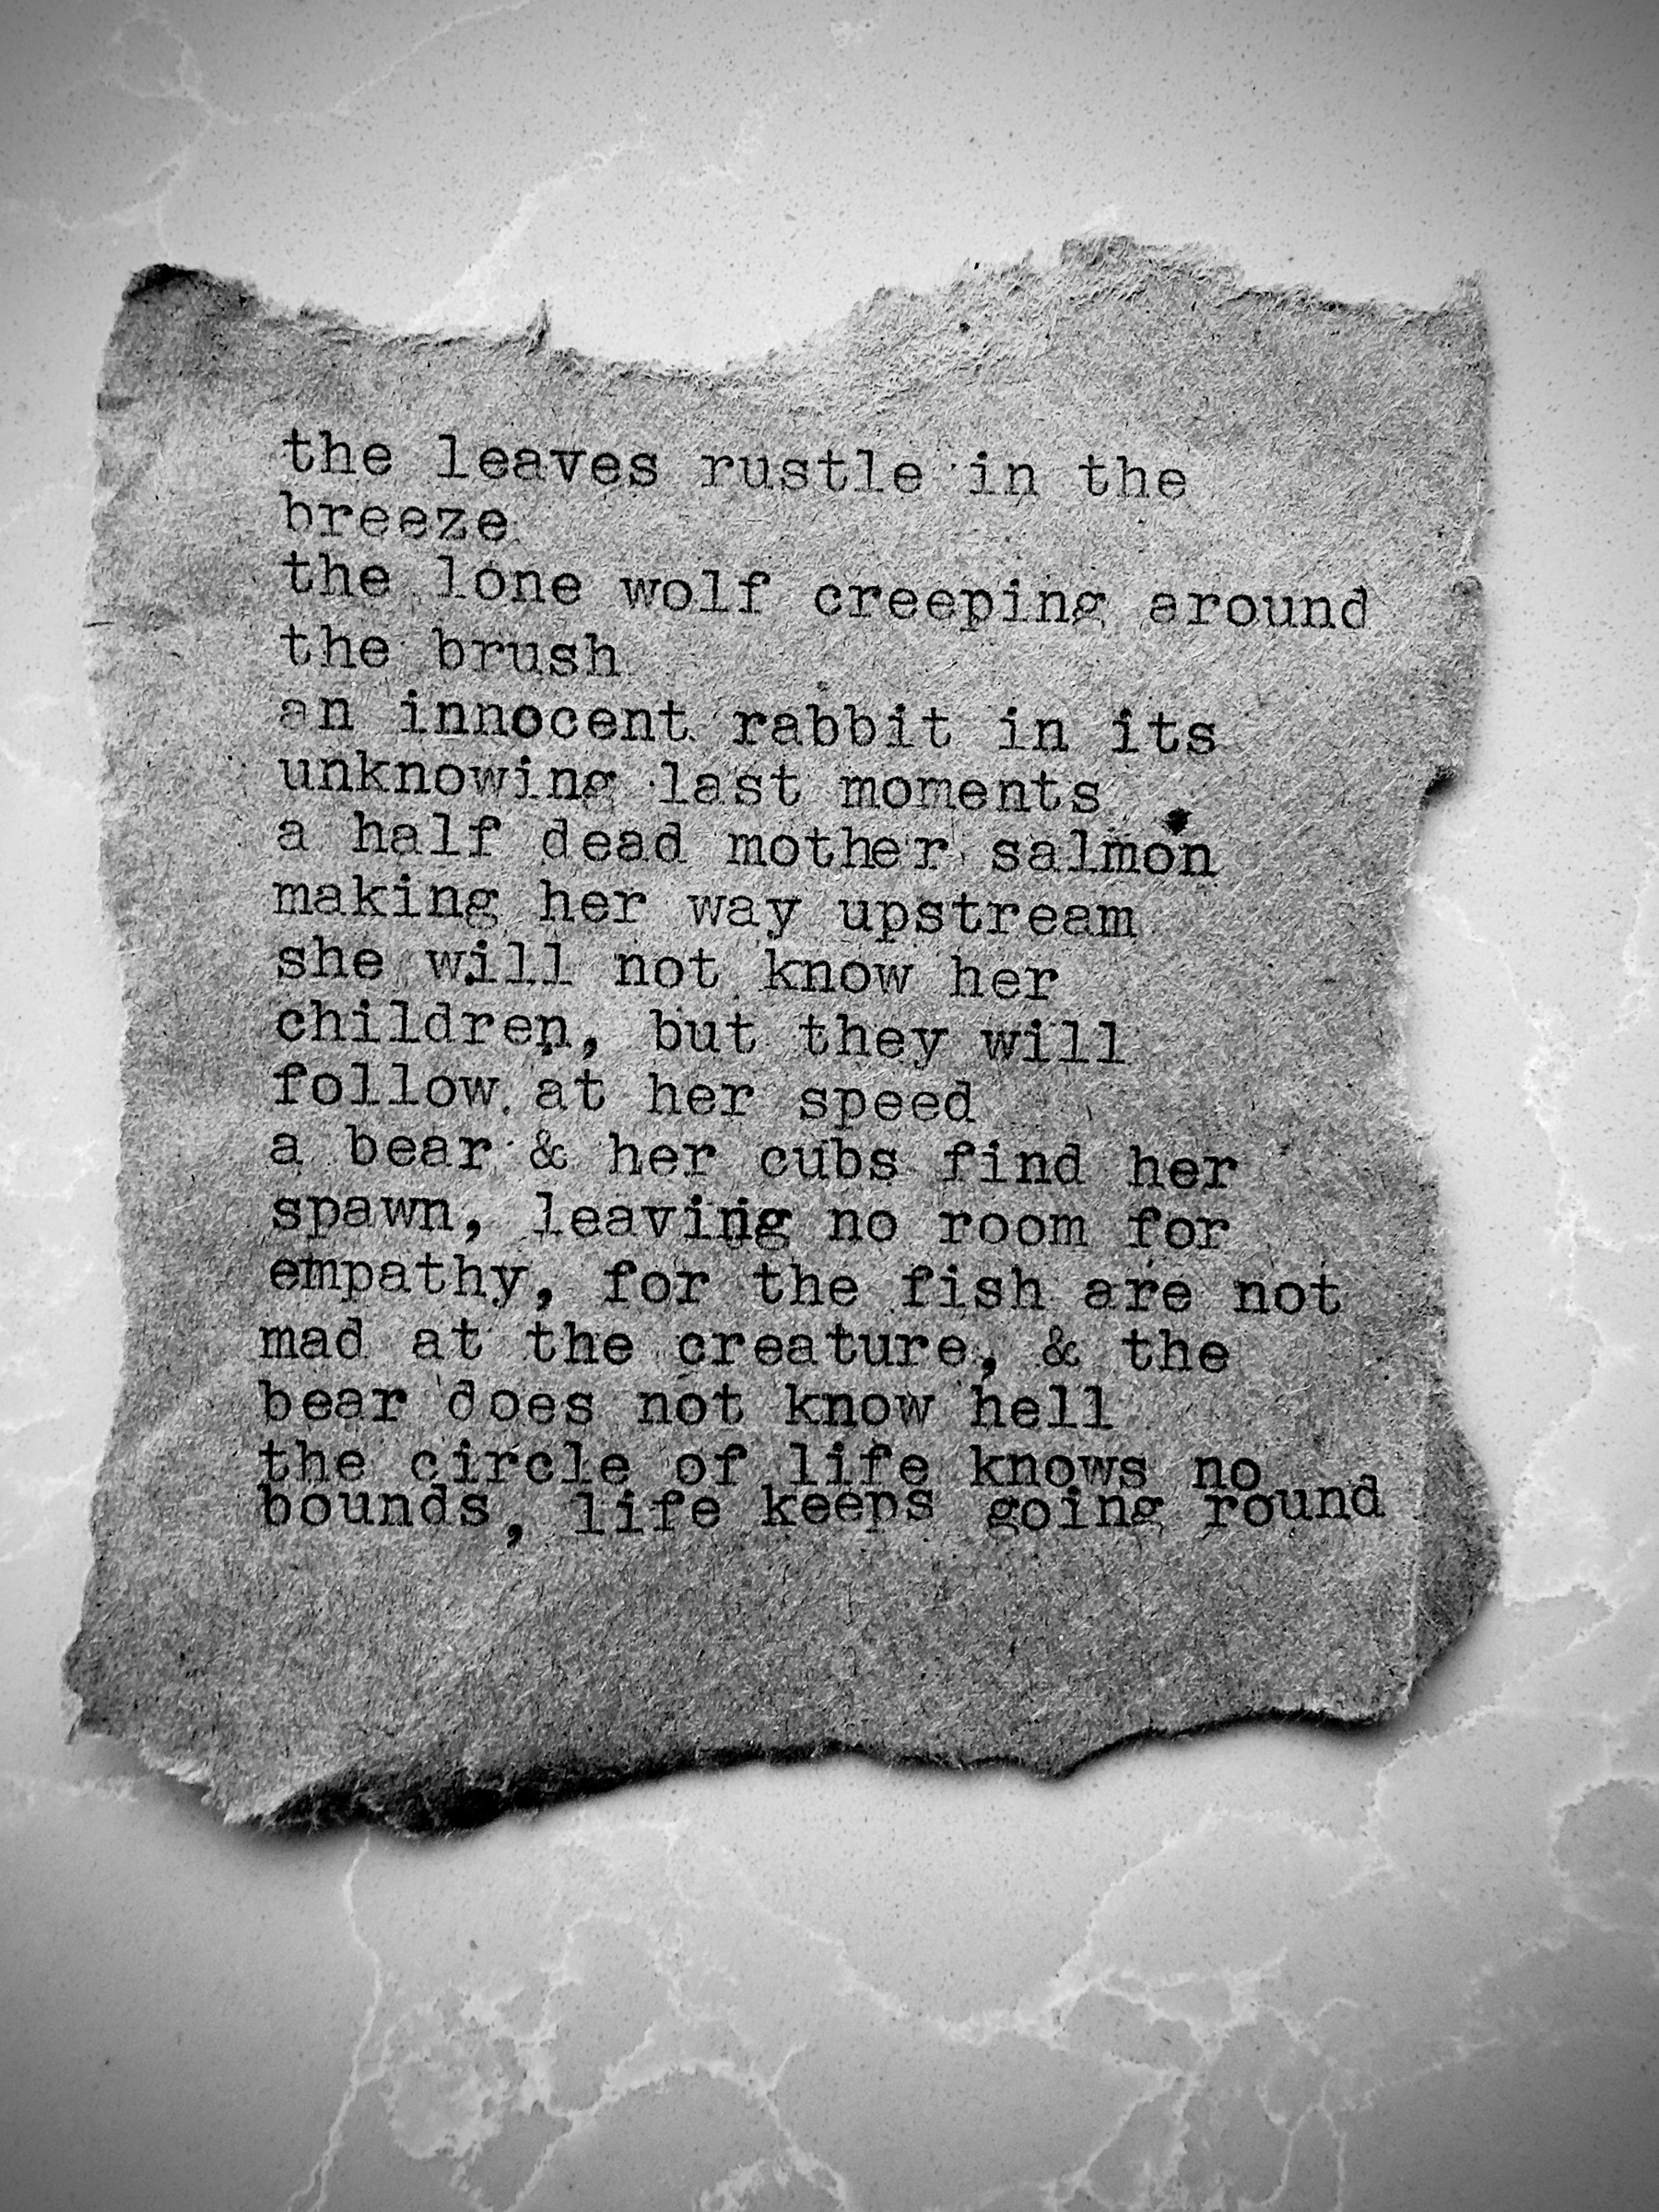 the leaves rustle in the
breeze
the lone wolf creeping around
the brush
an innocent rabbit in its
unknowing last moments
a half dead mother salmon
making her way upstream
she will not know her
children, but they will
follow at her speed
a bear & her cubs find her
spawn, leaving no room for
empathy, for the fish are not
mad at the creature, & the
bear does not know hell
the circle of life knows no
bounds, life keeps going round